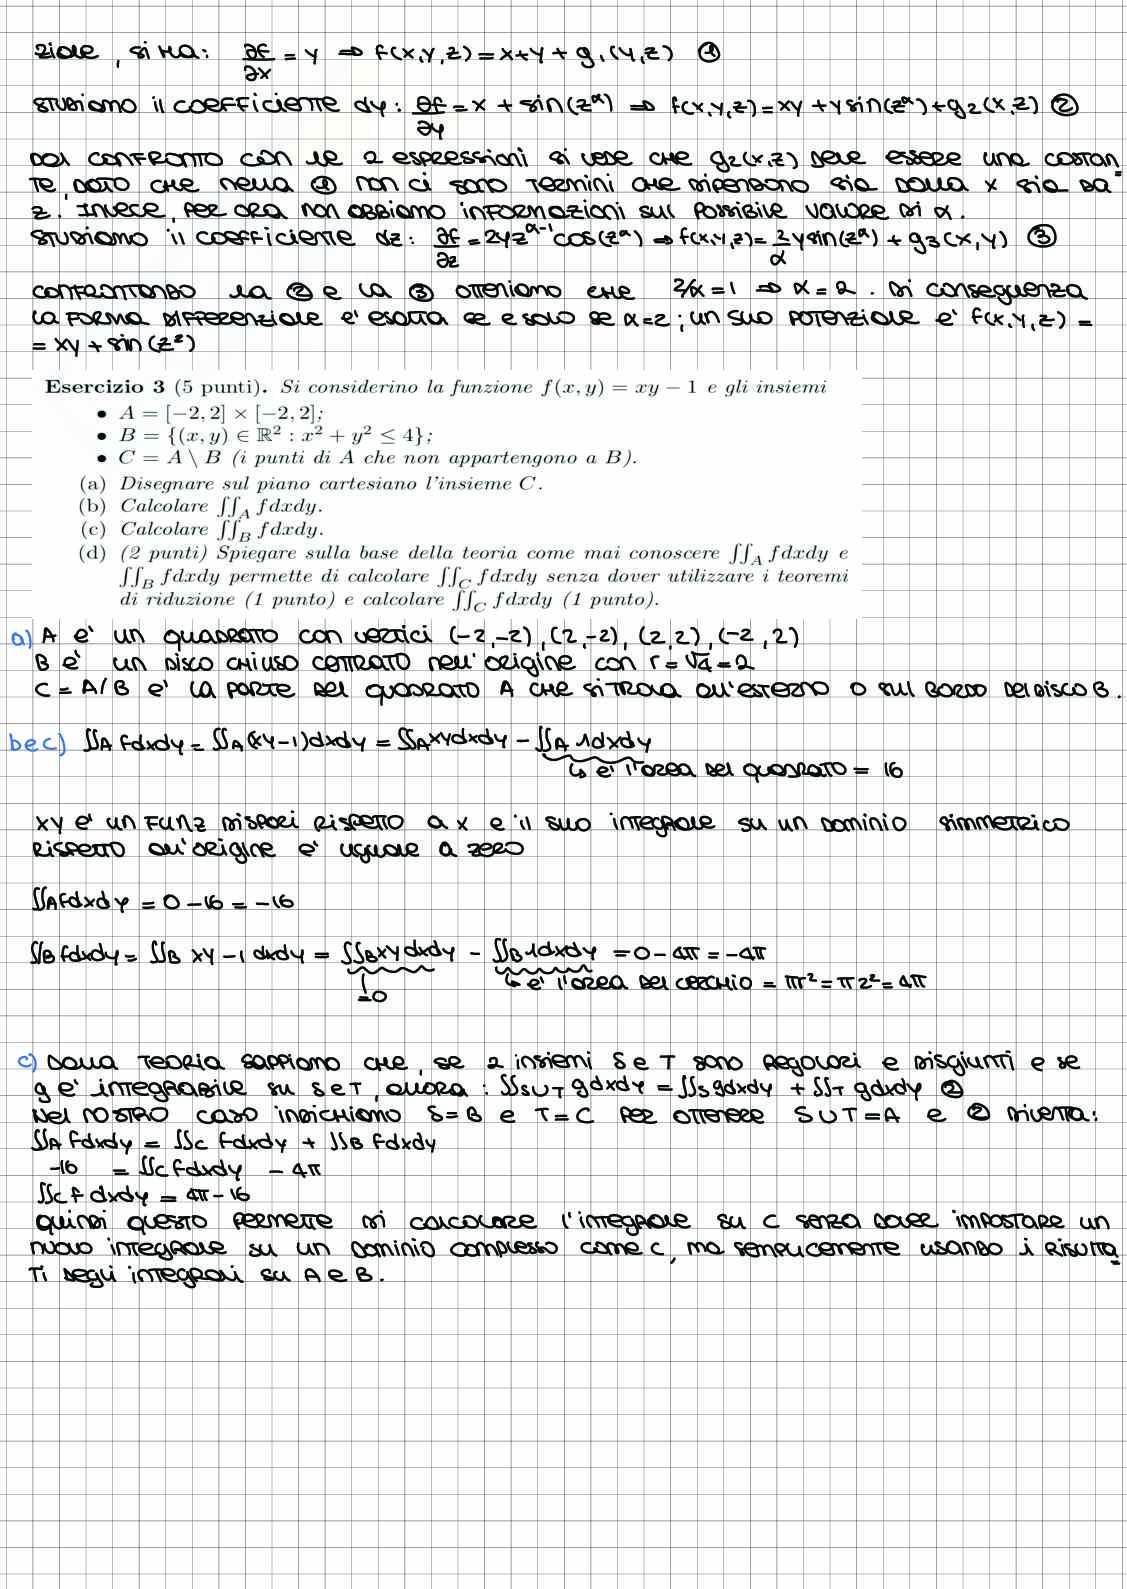 ziale, si ha: ∂f/∂x = y ⇒ f(x,y,z) = x+y + g₁(y,z) ①
studiamo il coefficiente dy: ∂f/∂y = x + sin(z^α) ⇒ f(x,y,z) = xy + y sin(z^α) + g₂(x,z) ②
Dal confronto con le 2 espressioni si vede che g₂(x,z) deve essere una costan
te, dato che nella ① non ci sono termini che dipendono sia dalla x sia da
z. Invece, per ora non abbiamo informazioni sul possibile valore di α.
studiamo il coefficiente dz: ∂f/∂z = 2yz^(α-1) cos(z^α) ⇒ f(x,y,z) = 2/α y sin(z^α) + g₃(x,y) ③
confrontando la ② e la ③ otteniamo che 2/α = 1 ⇒ α = 2. Di conseguenza
la forma differenziale e' esatta se e solo se α=2; un suo potenziale e' f(x,y,z) =
= xy + sin(z²)
Esercizio 3 (5 punti). Si considerino la funzione f(x, y) = xy − 1 e gli insiemi
• A = [−2, 2] × [−2, 2];
• B = {(x, y) ∈ ℝ² : x² + y² ≤ 4};
• C = A \ B (i punti di A che non appartengono a B).
(a) Disegnare sul piano cartesiano l'insieme C.
(b) Calcolare ∬_A fdxdy.
(c) Calcolare ∬_B fdxdy.
(d) (2 punti) Spiegare sulla base della teoria come mai conoscere ∬_A fdxdy e
∬_B fdxdy permette di calcolare ∬_C fdxdy senza dover utilizzare i teoremi
di riduzione (1 punto) e calcolare ∬_C fdxdy (1 punto).
a) A e' un quadrato con vertici (-2,-2), (2,-2), (2,2), (-2,2)
B e' un disco chiuso cetrato nell'origine con r = √4 = 2
C = A/B e' la parte del quadrato A che si trova all'esterno o sul bordo del disco B.
b e c) ∬_A fdxdy = ∬_A (xy-1)dxdy = ∬_A xydxdy - ∬_A 1dxdy
↳ e' l'area del quadrato = 16
xy e' un funz dispari rispetto a x e il suo integrale su un dominio simmetrico
rispetto all'origine e' uguale a zero
∬_A fdxdy = 0 - 16 = -16
∬_B fdxdy = ∬_B xy - 1 dxdy = ∬_B xy dxdy - ∬_B 1dxdy = 0 - 4π = -4π
=0 ↳ e' l'area del cerchio = πr² = π2² = 4π
c) Dalla teoria sappiamo che, se 2 insiemi S e T sono regolari e disgiunti e se
g e' integrabile su S e T, allora: ∬_S∪T gdxdy = ∬_S gdxdy + ∬_T gdxdy ②
Nel nostro caso indichiamo S=B e T=C per ottenere S∪T=A e ② diventa:
∬_A fdxdy = ∬_C fdxdy + ∬_B fdxdy
-16 = ∬_C fdxdy - 4π
∬_C f dxdy = 4π - 16
quindi questo permette di calcolare l'integrale su C senza dover impostare un
nuovo integrale su un dominio complesso come C, ma semplicemente usando i risulta
ti degli integrali su A e B.